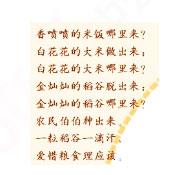 香喷喷的米饭哪里来?
白花花的大米做出来;
白花花的大米哪里来?
金灿灿的稻谷脱出来;
金灿灿的稻谷哪里来?
农民伯伯种出来。
一粒稻谷一滴汗,
爱惜粮食理应该。